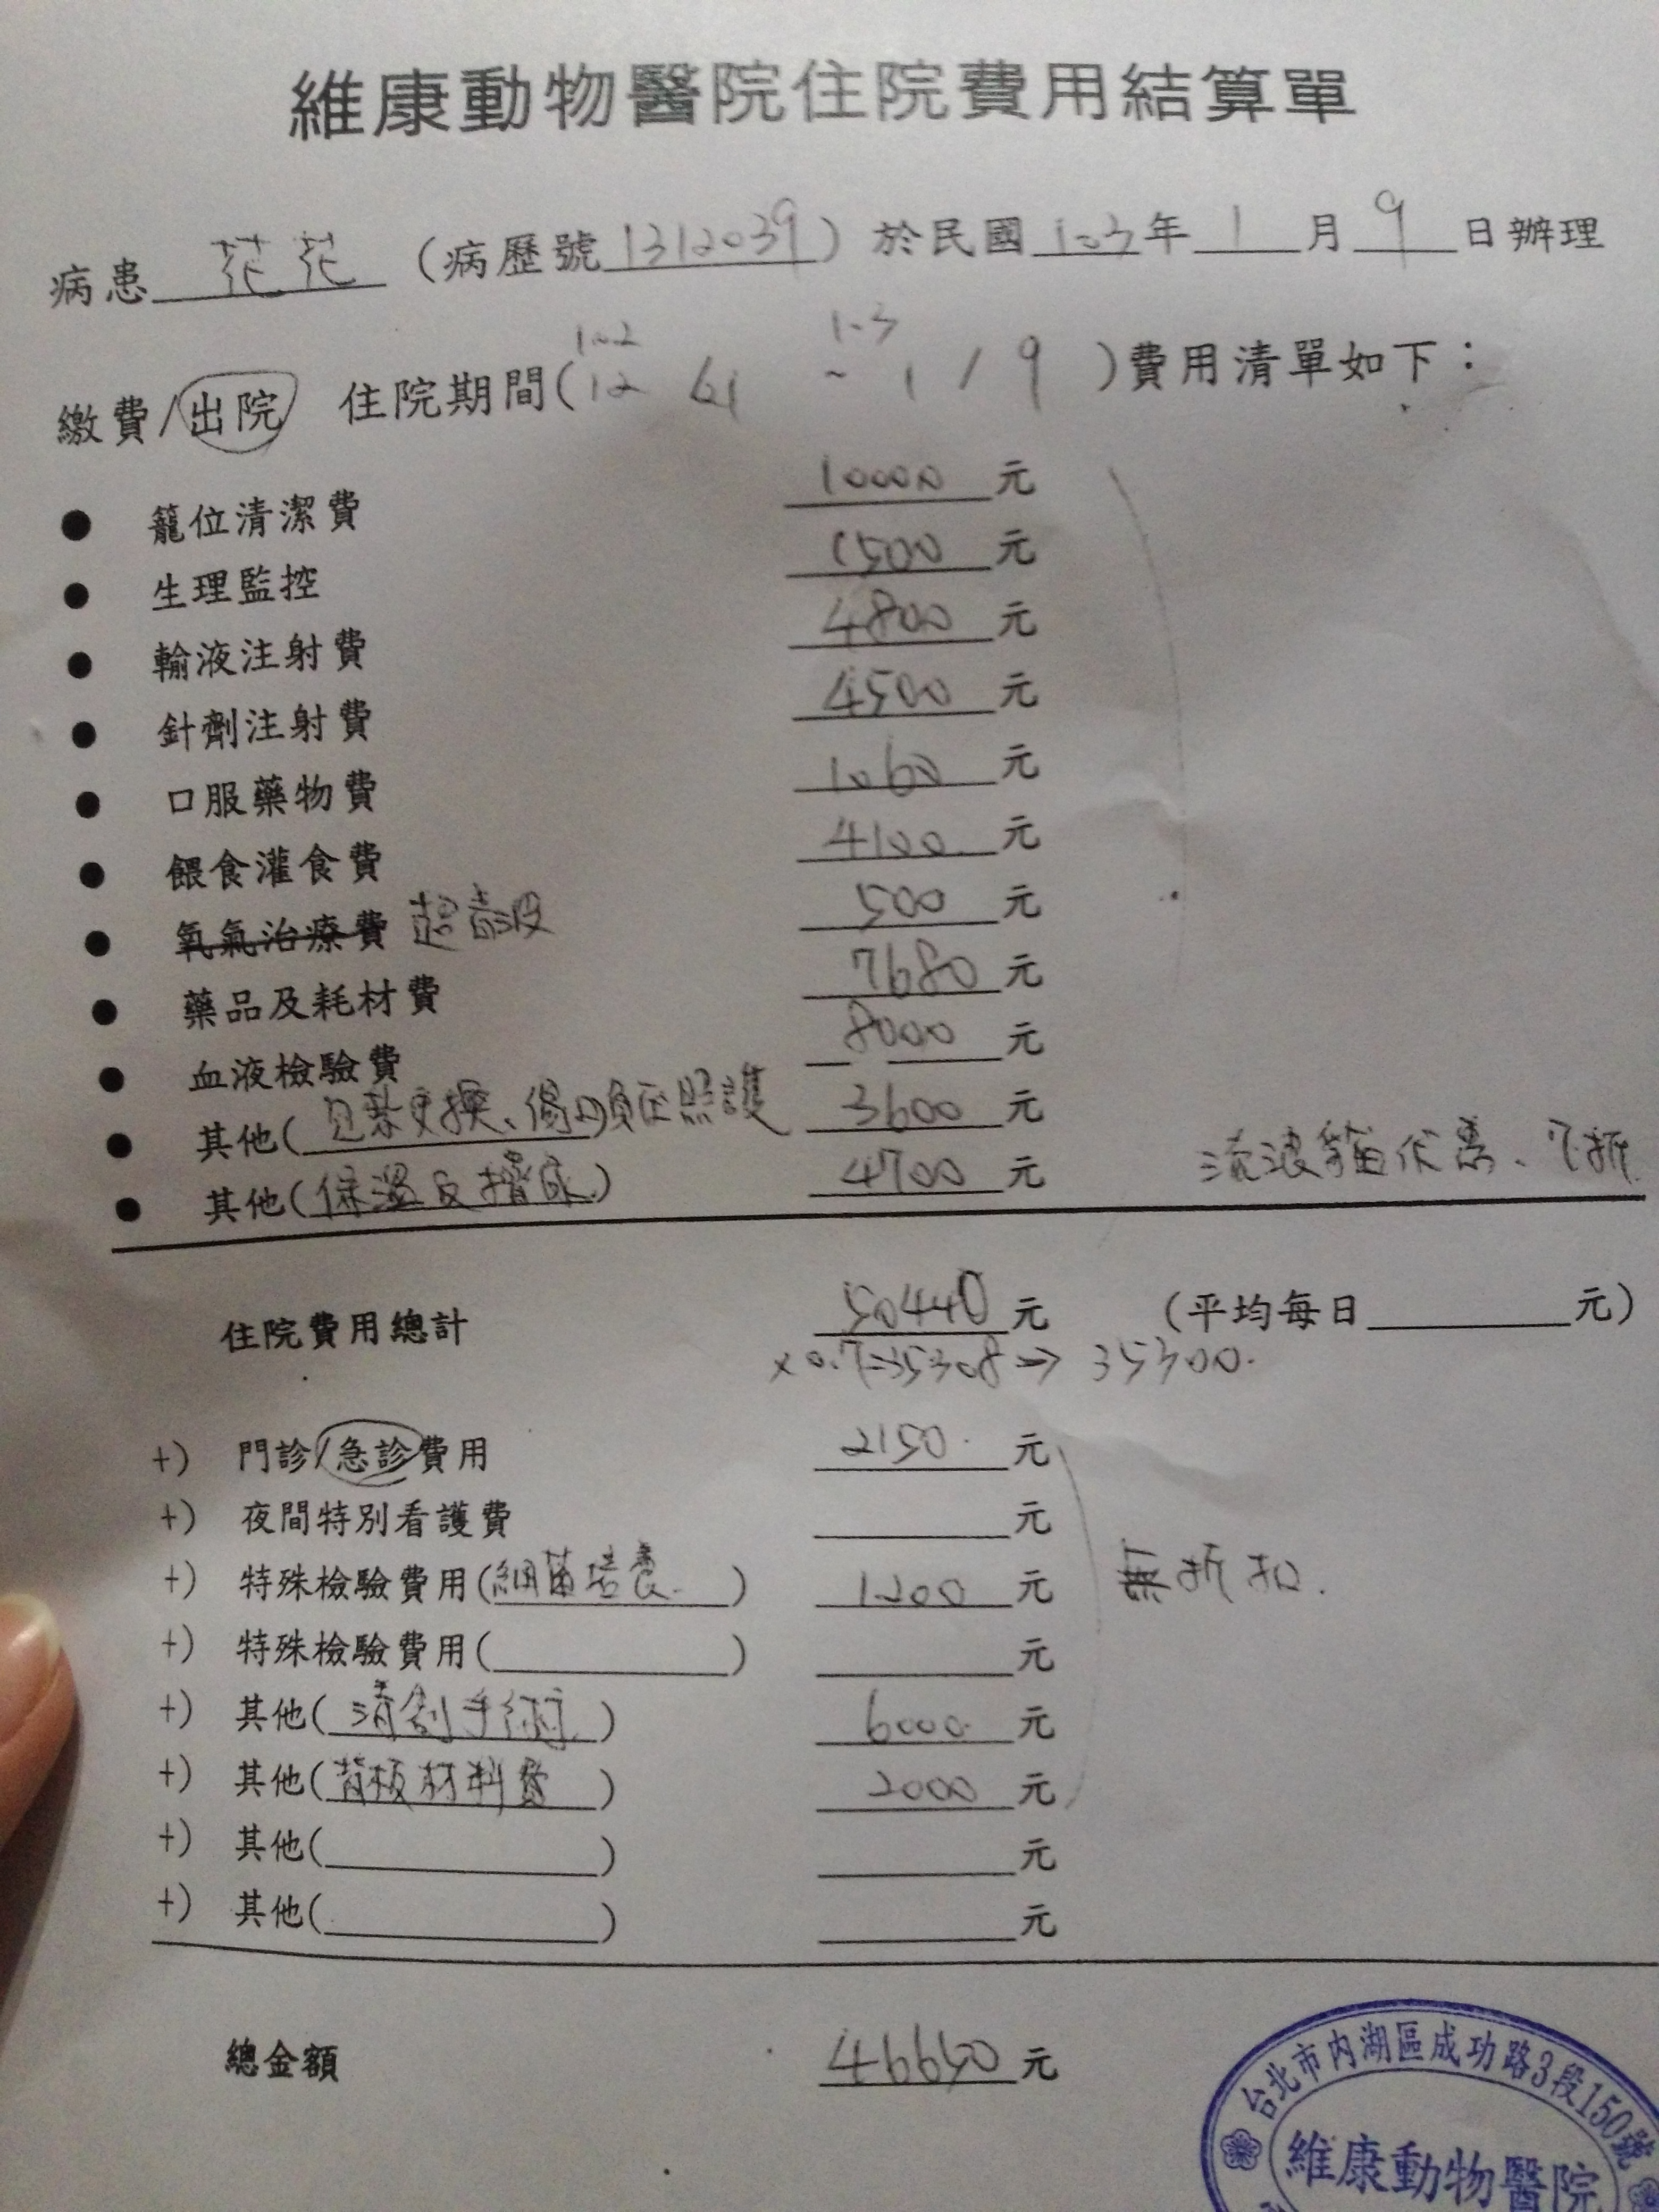 維康動物醫院住院費用結算單
病患 花花 (病歷號 1312039) 於民國 103 年 1 月 9 日辦理
102 103
繳費/出院 住院期間(12 ~ 1 / 9 )費用清單如下：
● 籠位清潔費 10000 元
● 生理監控 1500 元
● 輸液注射費 4800 元
● 針劑注射費 4500 元
● 口服藥物費 1060 元
● 餵食灌食費 4100 元
● 氧氣治療費 超音波 500 元
● 藥品及耗材費 7680 元
● 血液檢驗費 8000 元
● 其他( 更換、傷口負压照護 3600 元
● 其他(保溫及擠尿) 4700 元 流浪貓优惠、7折
住院費用總計 50440 元 (平均每日 元)
x0.7=35308⇒ 35300.
+) 門診/急診費用 2150. 元
+) 夜間特別看護費 元
+) 特殊檢驗費用(細菌培養.) 1200 元 無折扣.
+) 特殊檢驗費用( ) 元
+) 其他(清創手術) 6000. 元
+) 其他(背板材料費) 2000 元
+) 其他( ) 元
+) 其他( ) 元
總金額 46650 元
台北市內湖區成功路3段150號
維康動物醫院